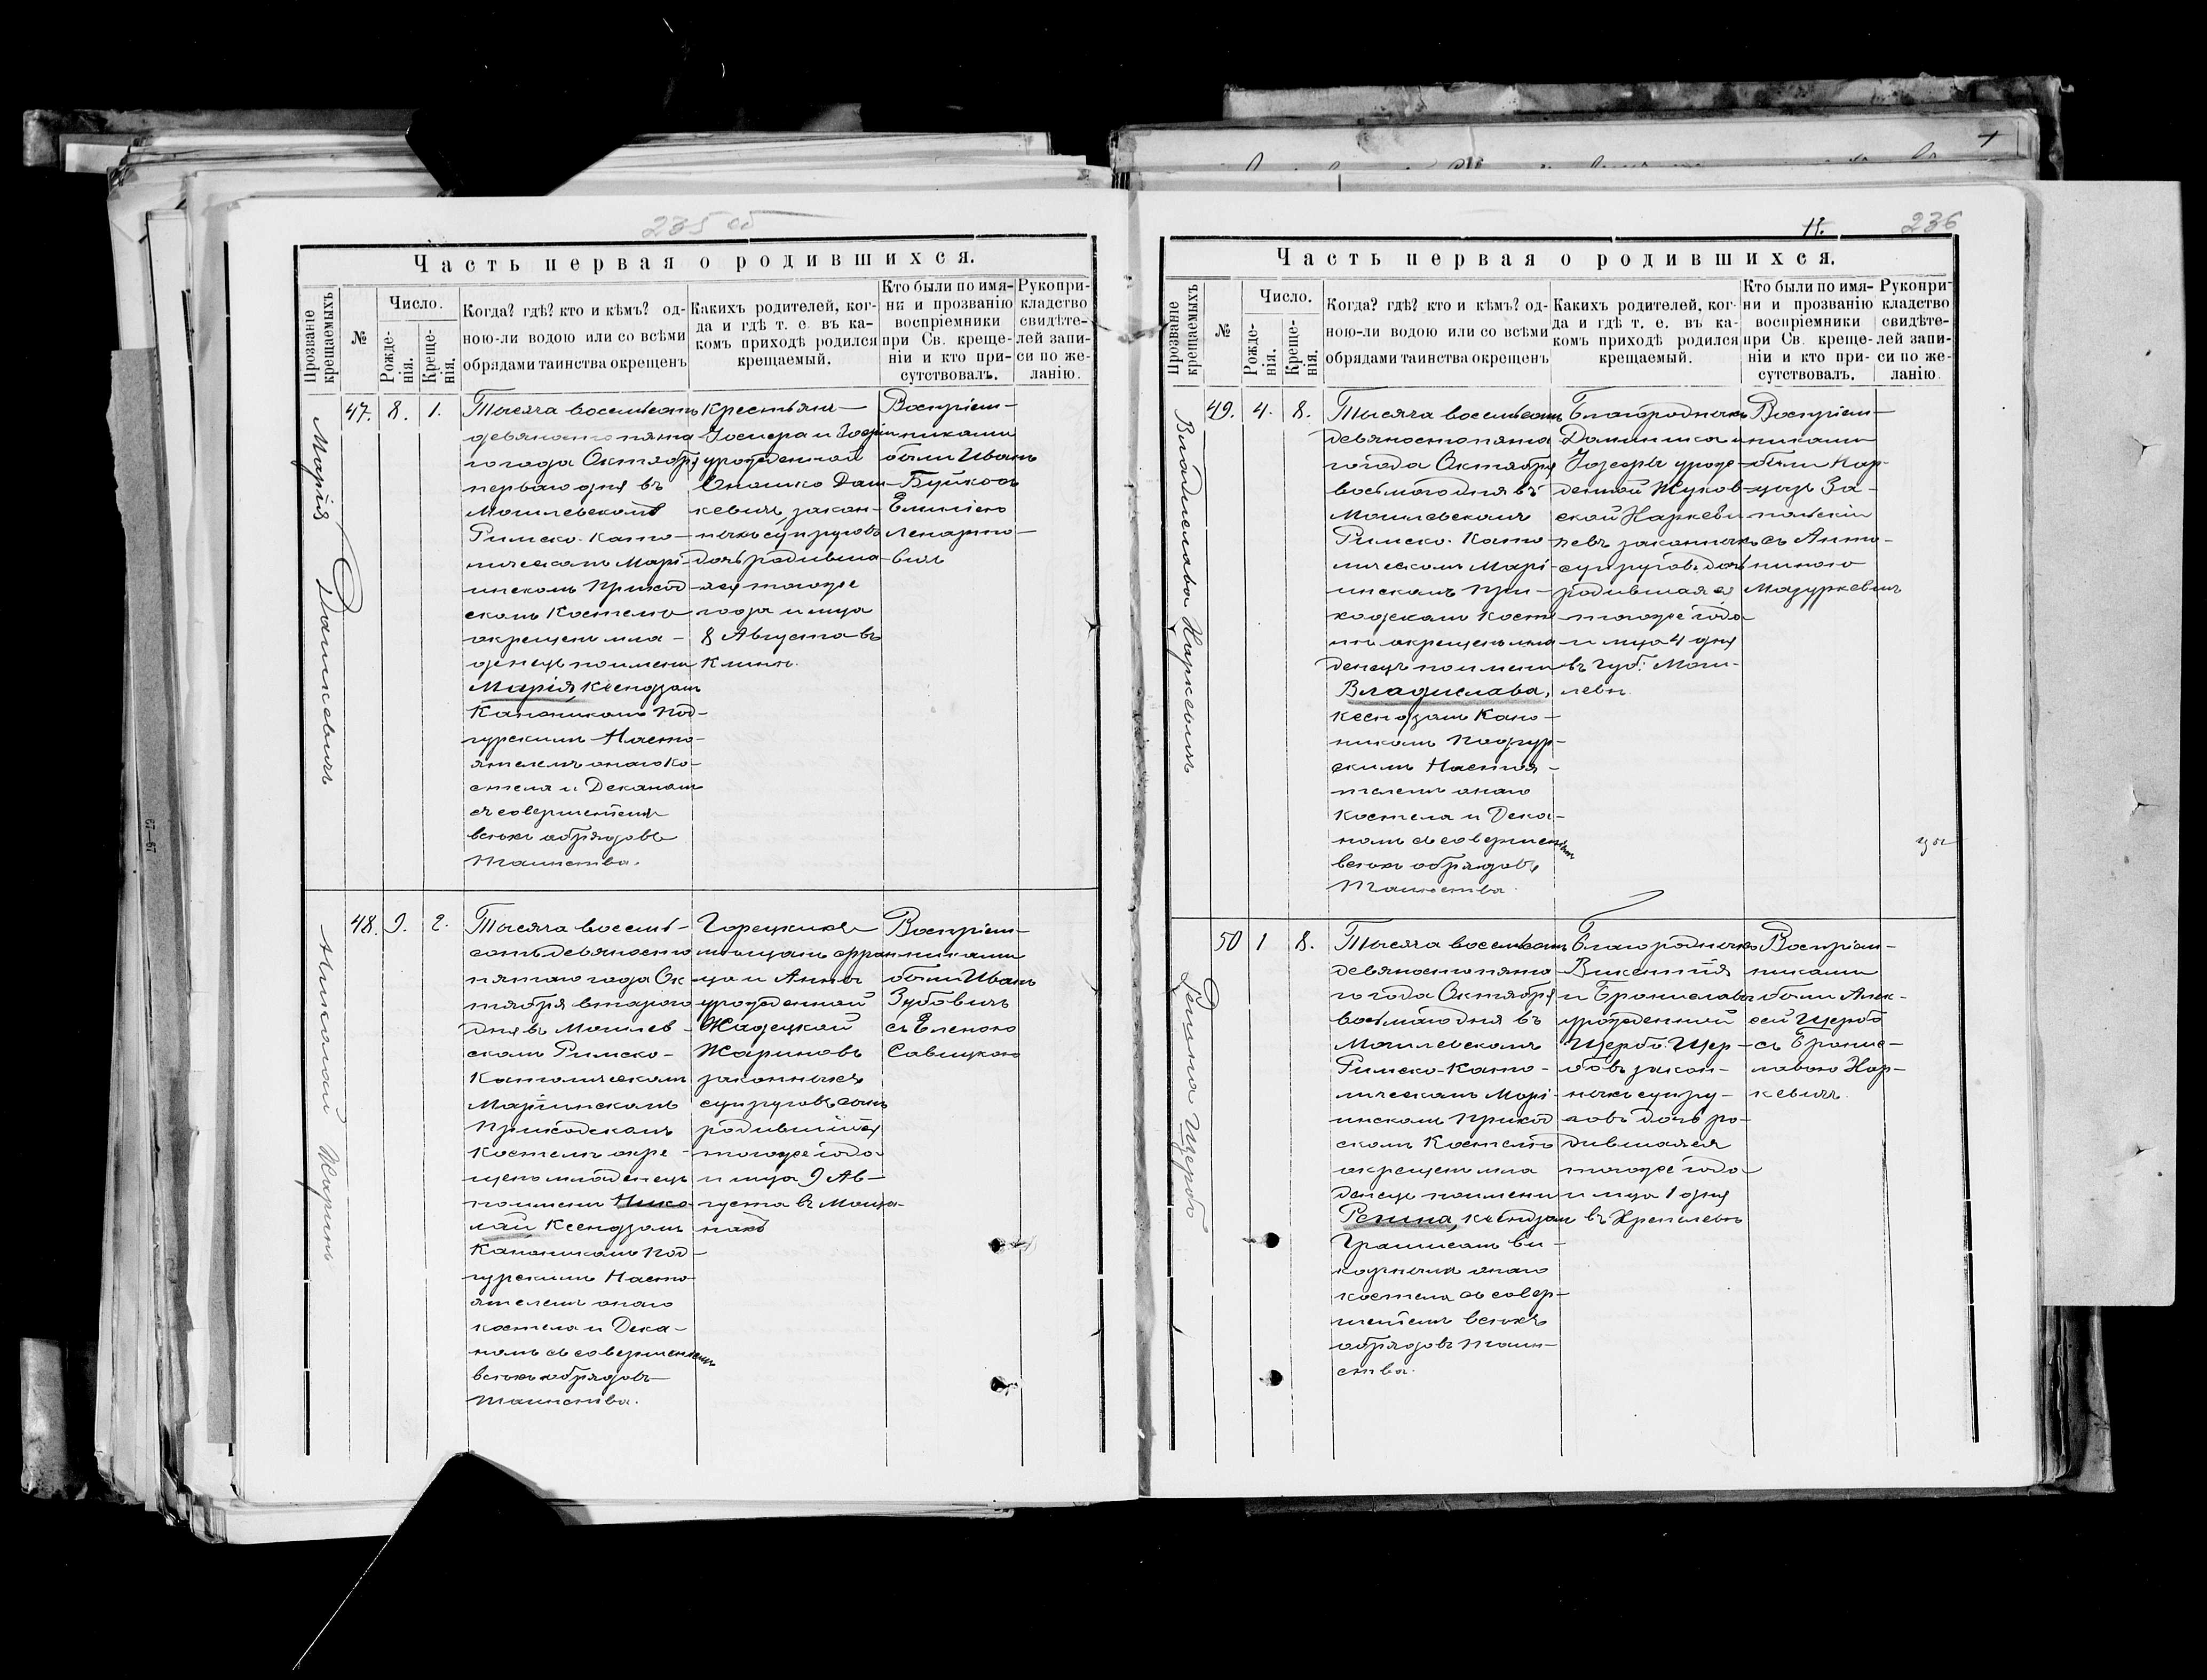 235 об
Часть первая о родившихся.
Прозваніе крещаемыхъ
№
Число.
Рожде-
нія.
Креще-
нія.
Когда? гдѣ? кто и кѣмъ? од-
ною-ли водою или со всѣми
обрядами таинства окрещенъ
Какихъ родителей, ког-
да и гдѣ т. е. въ ка-
комъ приходѣ родился
крещаемый.
Кто были по имя-
ни и прозванію
воспріемники
при Св. креще-
ніи и кто при-
сутствовалъ.
Рукопри-
кладство
свидѣте-
лей запи-
си по же-
ланію.
Марія Дашкевичъ
47. 8. 1.
Тысяча восемьсотъ
девяносто пята
го года Октября
перваго дня въ
Могилевскомъ
Римско-Като-
лическомъ Марі-
инскомъ Приход
скомъ Костелѣ
окрещенъ мла-
денецъ по имени
Марія, Ксендзомъ
Каноникомъ Под-
гурскимъ Насто-
ятелемъ онаго Ко-
стела и Деканомъ
съ совершеніемъ
всѣхъ обрядовъ
Таинства.
Крестьянъ
урожденной
Дащ-
кевичъ, закон-
ныхъ супруговъ
дочь родивша-
яся тогоже
года и мца
8 Августа въ
Воспріем-
никами
были Иванъ
Буйко съ
Емиліею
Ленарто-
вичъ
Николай Жаринъ
48. 9. 2.
Тысяча восемь-
сотъ девяносто
пятаго года Ок
тября втораго
дня въ Могилев-
скомъ Римско-
Католическомъ
Маріинскомъ
Приходскомъ
Костелѣ окре-
щенъ младенецъ
по имени Нико-
лай Ксендзомъ
Каноникомъ Под-
гурскимъ Насто-
ятелемъ онаго
костела и Дека-
номъ съ совершеніемъ
всѣхъ обрядовъ
Таинства.
Горецкихъ
мѣщанъ Фран
ца и Анны
урожденной
Жариновъ
законныхъ
супруговъ сынъ
родившійся
тогоже года
и мца 9 Ав-
густа въ
Воспріем-
никами
были Иванъ
Зубовичъ
съ Еленою
Савицкою
236
Часть первая о родившихся.
Прозваніе крещаемыхъ
№
Число.
Рожде-
нія.
Креще-
нія.
Когда? гдѣ? кто и кѣмъ? од-
ною-ли водою или со всѣми
обрядами таинства окрещенъ
Какихъ родителей, ког-
да и гдѣ т. е. въ ка-
комъ приходѣ родился
крещаемый.
Кто были по имя-
ни и прозванію
воспріемники
при Св. креще-
ніи и кто при-
сутствовалъ.
Рукопри-
кладство
свидѣте-
лей запи-
си по же-
ланію.
Владислава Наркевичъ
49. 4. 8.
Тысяча восемьсотъ
девяносто пята
го года Октября
восьмого дня въ
Могилевскомъ
Римско-Като-
лическомъ Марі-
инскомъ При-
ходскомъ Косте
лѣ окрещенъ мла
денецъ по имени
Владислава,
ксендзомъ Кано-
никомъ Подгур-
скимъ Настоя-
телемъ онаго
Костела и Дека-
номъ съ совершеніемъ
всѣхъ обрядовъ
Таинства.
Благородныхъ
Доминика и
Іозефы урож-
денной Жуков-
ской Наркеви-
чевъ законныхъ
супруговъ дочь
родившаяся
тогоже года
и мца 4 дня
въ губ. Моги-
левѣ
Воспріем-
никами
были Нар-
цизъ За-
польскій
съ Анто-
ниною
Мазуркевичъ
Регина Щербо
50 1 8.
Тысяча восемьсотъ
девяносто пята
го года Октября
восьмаго дня въ
Могилевскомъ
Римско-Като-
лическомъ Марі-
инскомъ Приход
скомъ Костелѣ
окрещенъ мла
денецъ по имени
Регина, ксендзом
ви-
карнымъ онаго
костела съ совер-
шеніемъ всѣхъ
обрядовъ Таин-
ства.
Благородныхъ
Викентія
и Брониславы
урожденной
Щербо Щер-
бовъ закон-
ныхъ супру-
говъ дочь ро-
дившаяся
тогоже года
и мца 1 дня
Воспріем-
никами
были Алек-
сѣй Щербо
съ Брони-
славою Нар-
кевичъ.